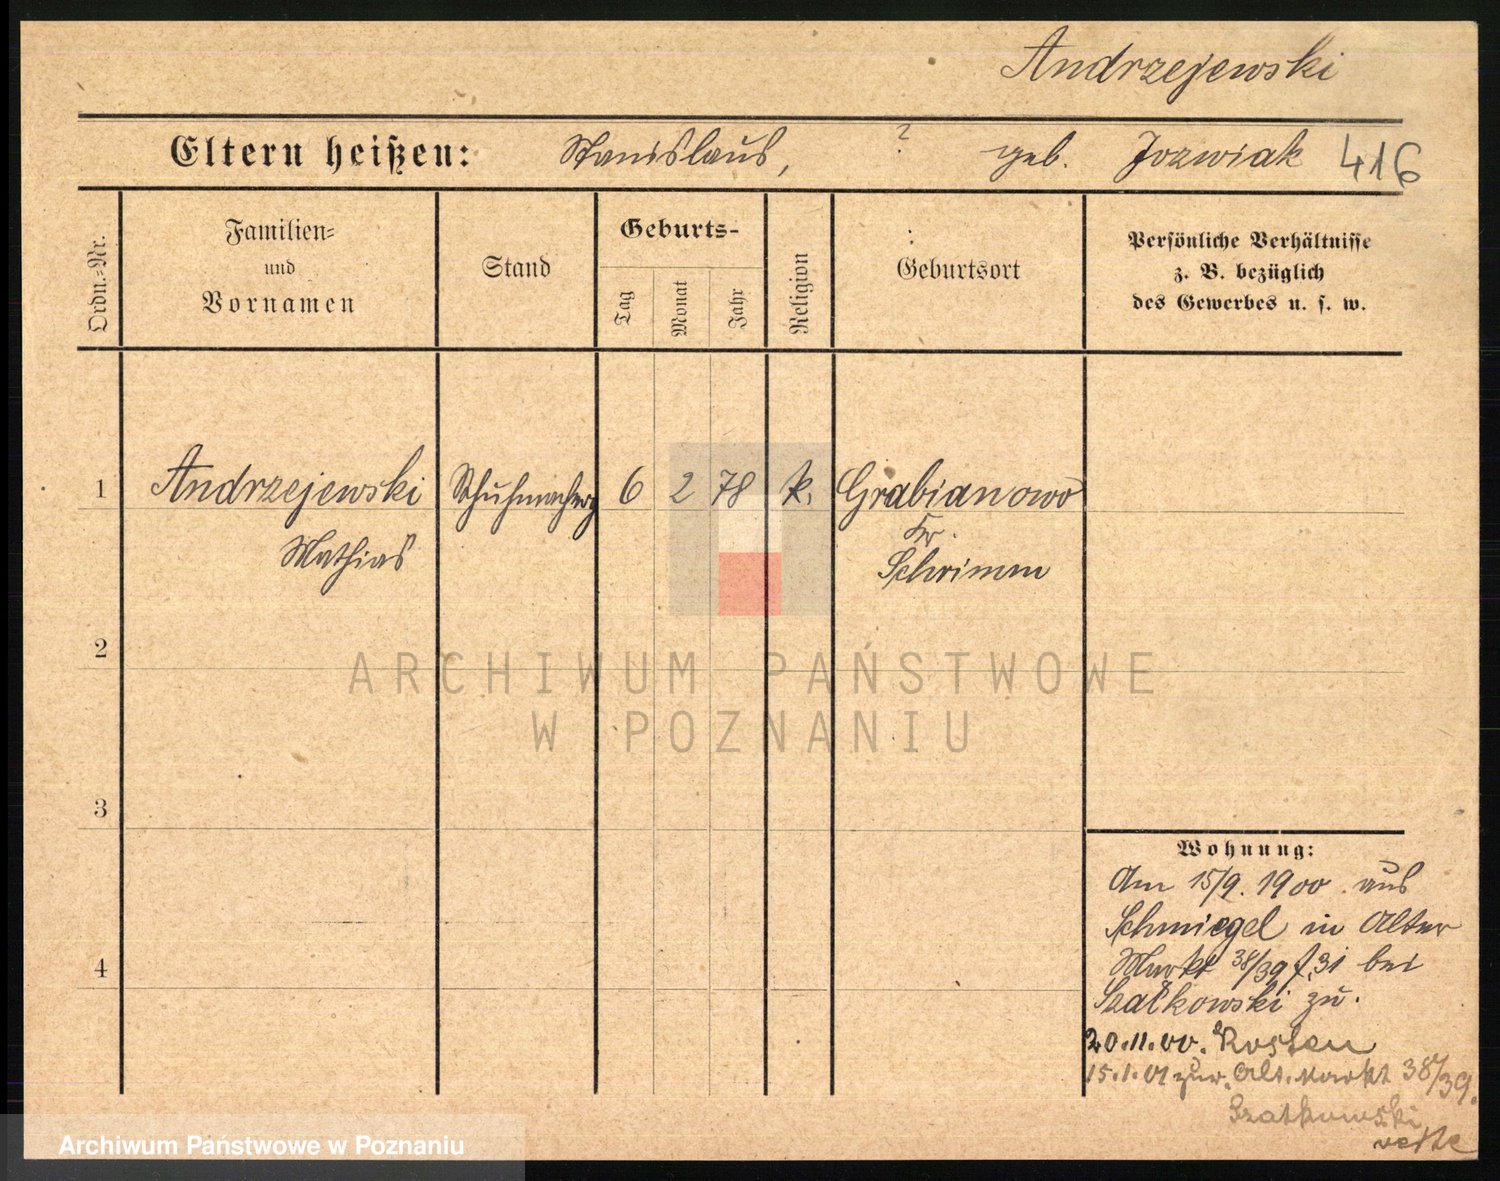 Andrzejewski
Eltern heißen: Stanislaus, ? geb. Jozwiak 416
Ordn.=Nr.
Familien=
und
Vornamen
Stand
Geburts-
Tag
Monat
Jahr
Religion
Geburtsort
Persönliche Verhältnisse
z. B. bezüglich
des Gewerbes u. s. w.
1 Andrzejewski Schuhmacherg 6 2 78 k. Grabianowo
Mathias
Kr.
Schrimm
2
ARCHIWUM PAŃSTWOWE
W POZNANIU
3
Wohnung:
Am 15/9. 1900. aus
Schmiegel in Alter
4
Markt 38/39 31 bei
Szatkowski zu.
20.11.00. Kosten
15.1.01 zur. Alt. Markt 38/39.
Szatkowski
Archiwum Państwowe w Poznaniu